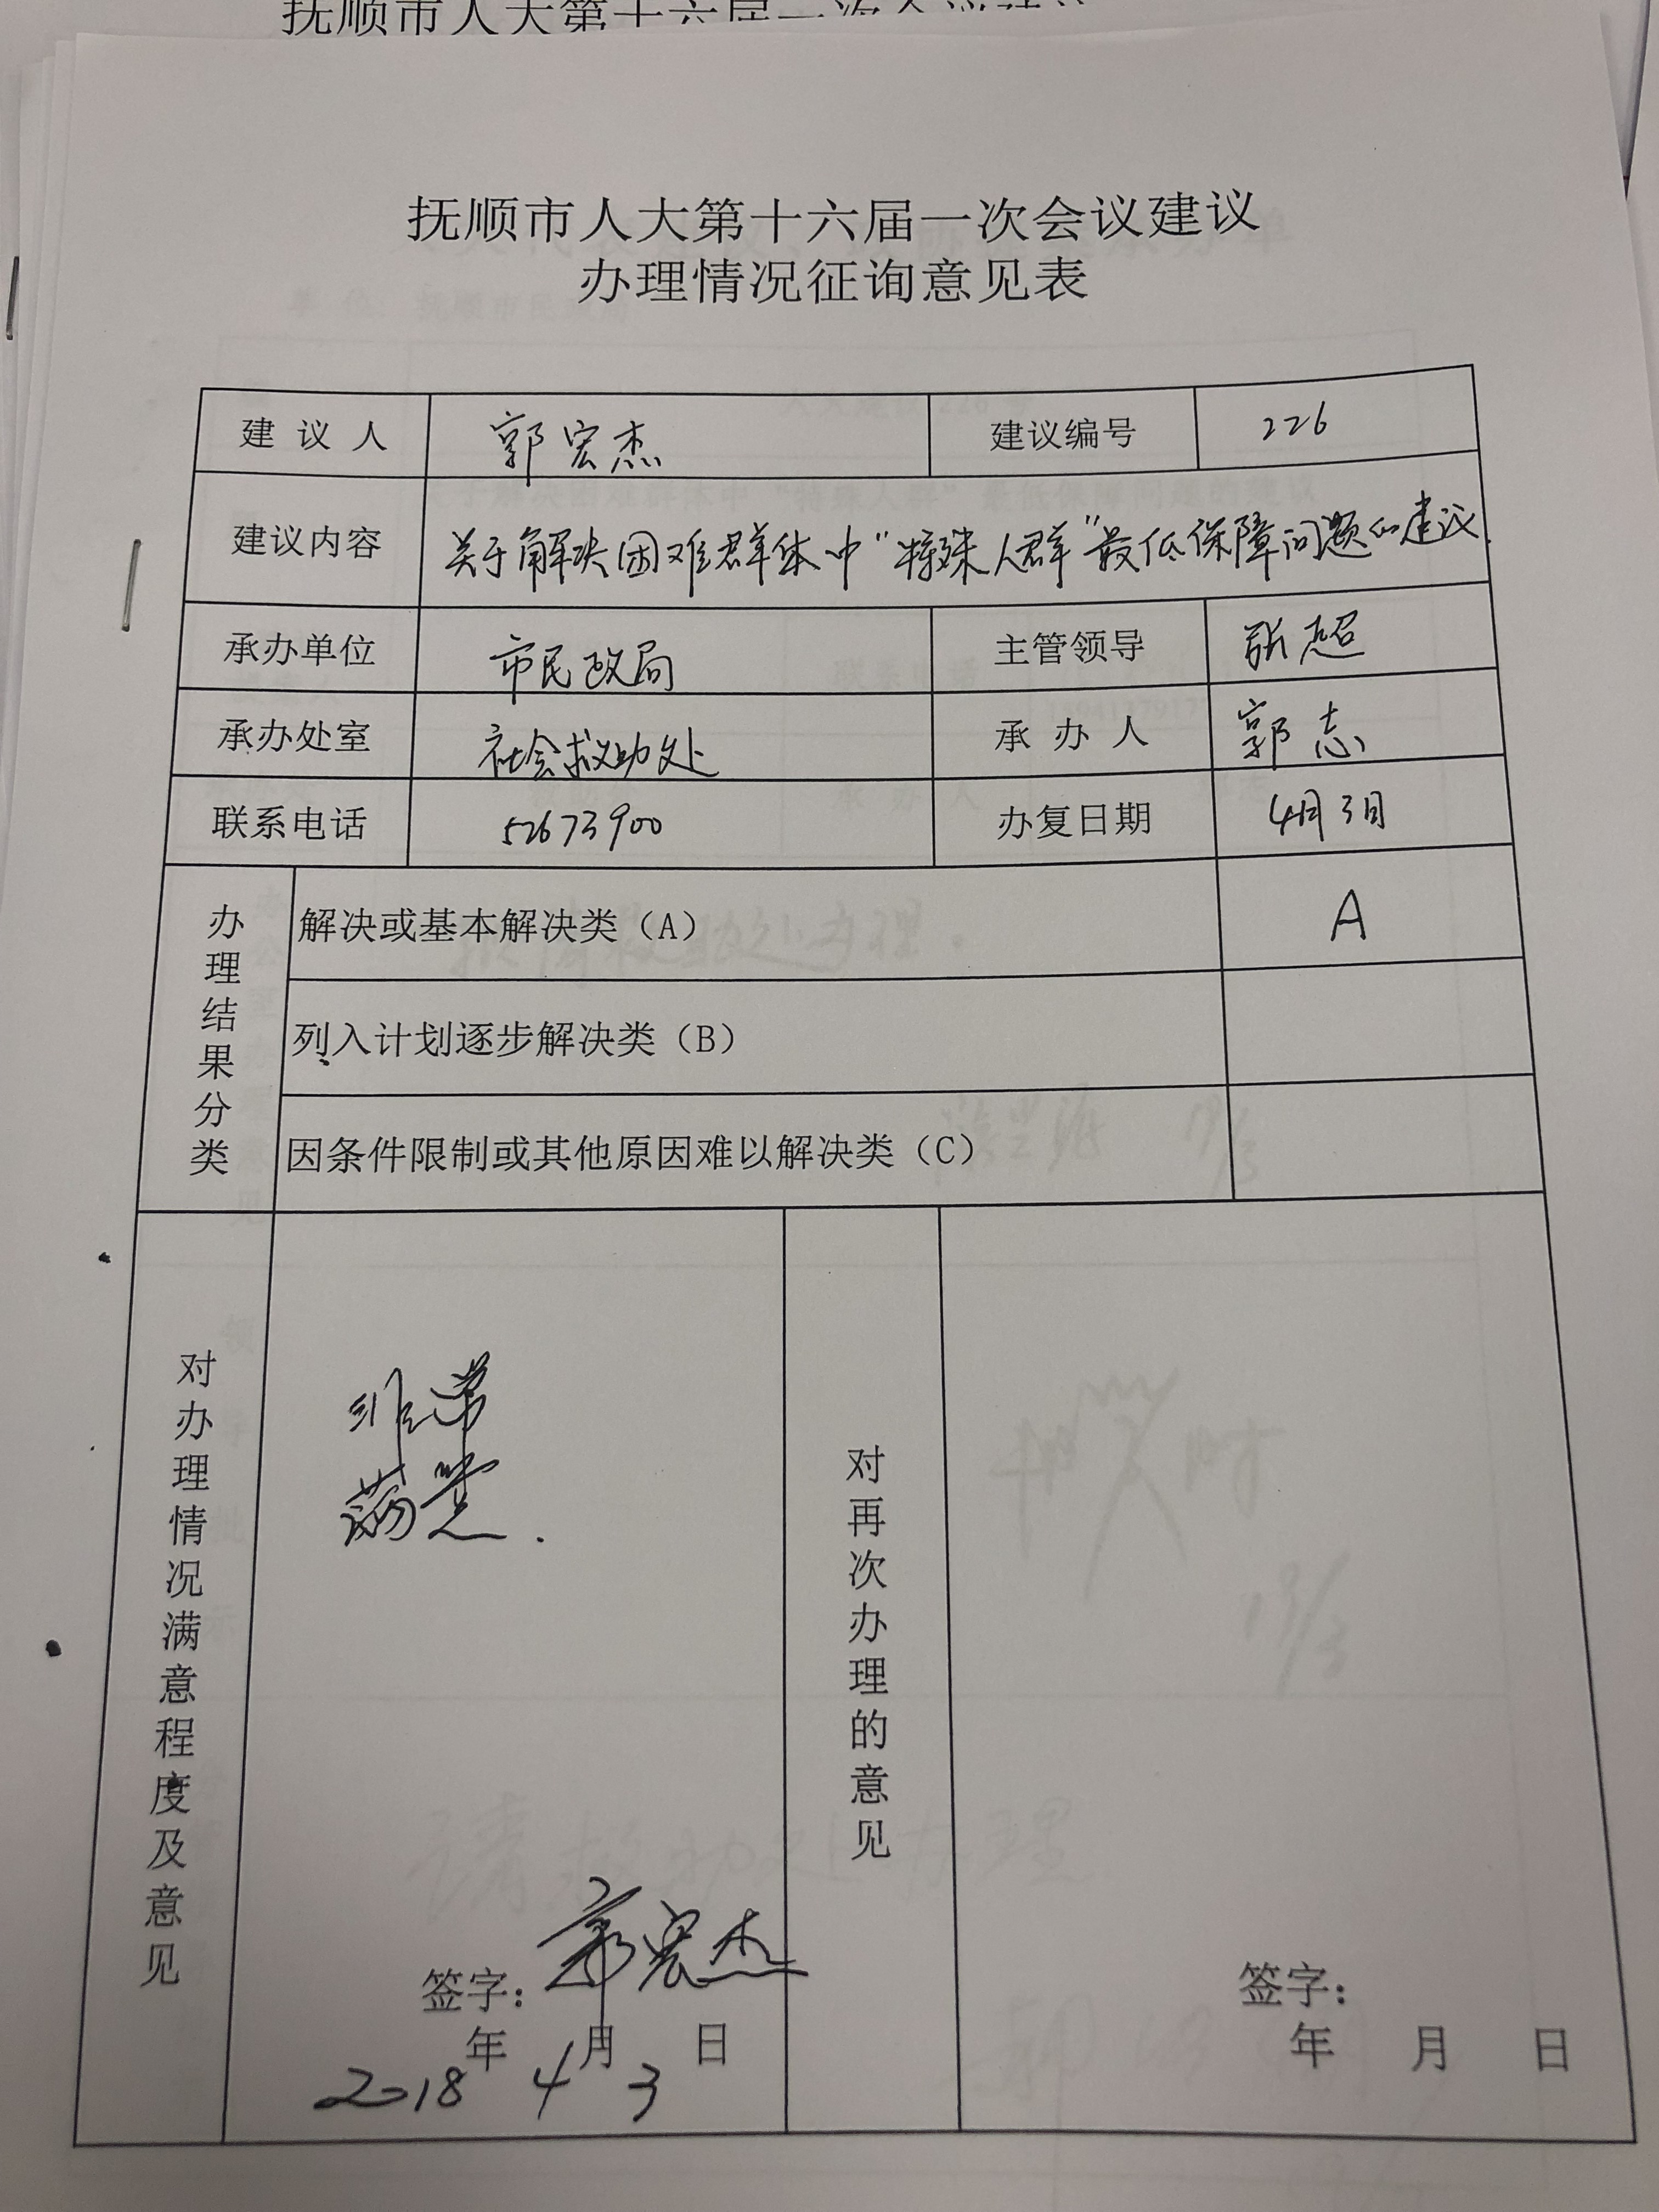 抚顺市人大第十六届一次会议建议
抚顺市人大第十六届一次会议建议
办理情况征询意见表
建 议 人 郭宏杰 建议编号 226
建议内容 关于解决困难群体中“特殊人群”最低保障问题的建议.
承办单位 市民政局 主管领导 张超
承办处室 社会救助处 承 办 人 郭志
联系电话 52673900 办复日期 4月3日
办理结果分类
解决或基本解决类（A） A
列入计划逐步解决类（B）
因条件限制或其他原因难以解决类（C）
对办理情况满意程度及意见
非常
满意.
签字：郭宏杰
2018年4月3日
对再次办理的意见
签字：
年 月 日